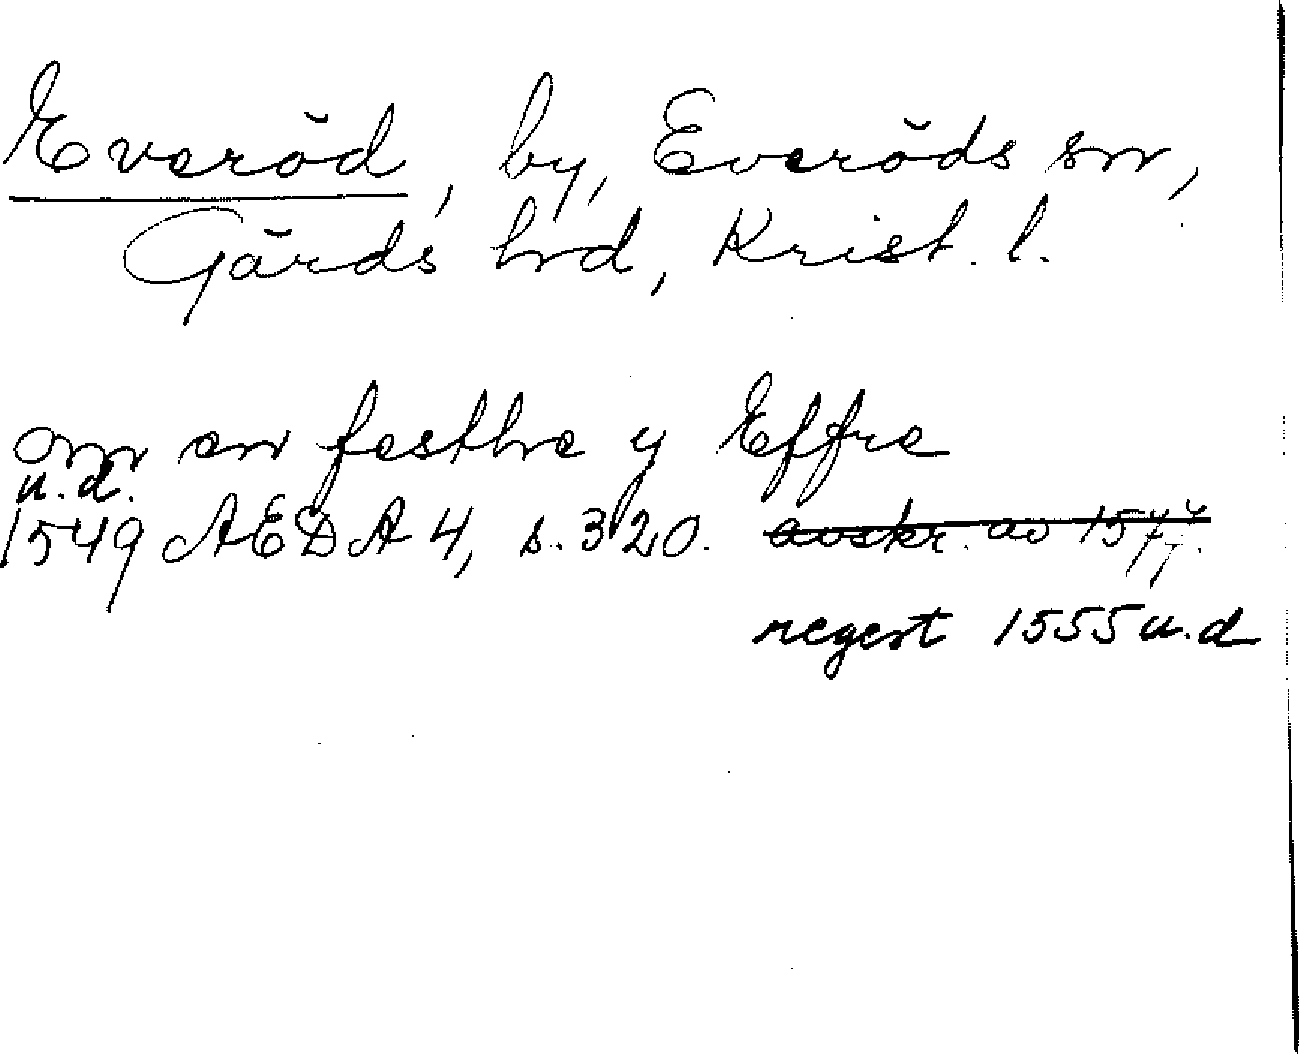 Everöd, by, Everöds sn,
Gärds hrd, Krist. l.
om en festhe y Effre
u.d.
1549 AEDA 4, s. 320. avskr. av
regest 1555 u.d